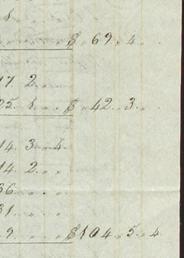 $ 69.4.
17 2
25. 1. $ .42. 3.
14. 3..4
14. 2..
36
31.
9.. $104.5.4